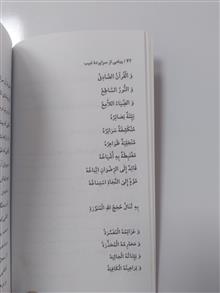 ۴۲ / پیامی از سراپرده غیب
وَ الْقُرْآنُ الصَّادِقُ
وَ النُّورُ السَّاطِعُ
وَ الضِّیَاءُ اللَّامِعُ
بَیِّنَةٌ بَصَائِرُهُ
مُنْکَشِفَةٌ سَرَائِرُهُ
مُنْجَلِیَةٌ ظَوَاهِرُهُ
مُغْتَبِطَةٌ بِهِ أَشْیَاعُهُ
قَائِدٌ إِلَی الرِّضْوَانِ اتِّبَاعُهُ
مُؤَدٍّ إِلَی النَّجَاةِ اسْتِمَاعُهُ
بِهِ تُنَالُ حُجَجُ اللهِ الْمُنَوَّرَةُ
وَ عَزَائِمُهُ الْمُفَسَّرَةُ
وَ مَحَارِمُهُ الْمُحَذَّرَةُ
وَ بَیِّنَاتُهُ الْجَالِیَةُ
وَ بَرَاهِینُهُ الْکَافِیَةُ